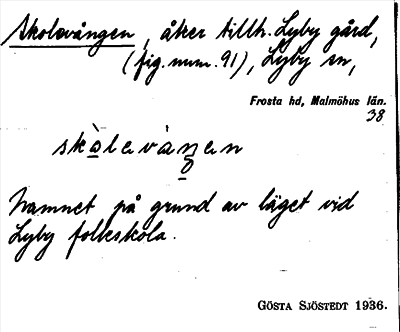 Skolevången, åker tillh. Lyby gård,
(fig. num. 91), Lyby sn,
Frosta hd, Malmöhus län.
38
Namnet på grund av läget vid
Lyby folkskola.
GÖSTA SJÖSTEDT 1936.